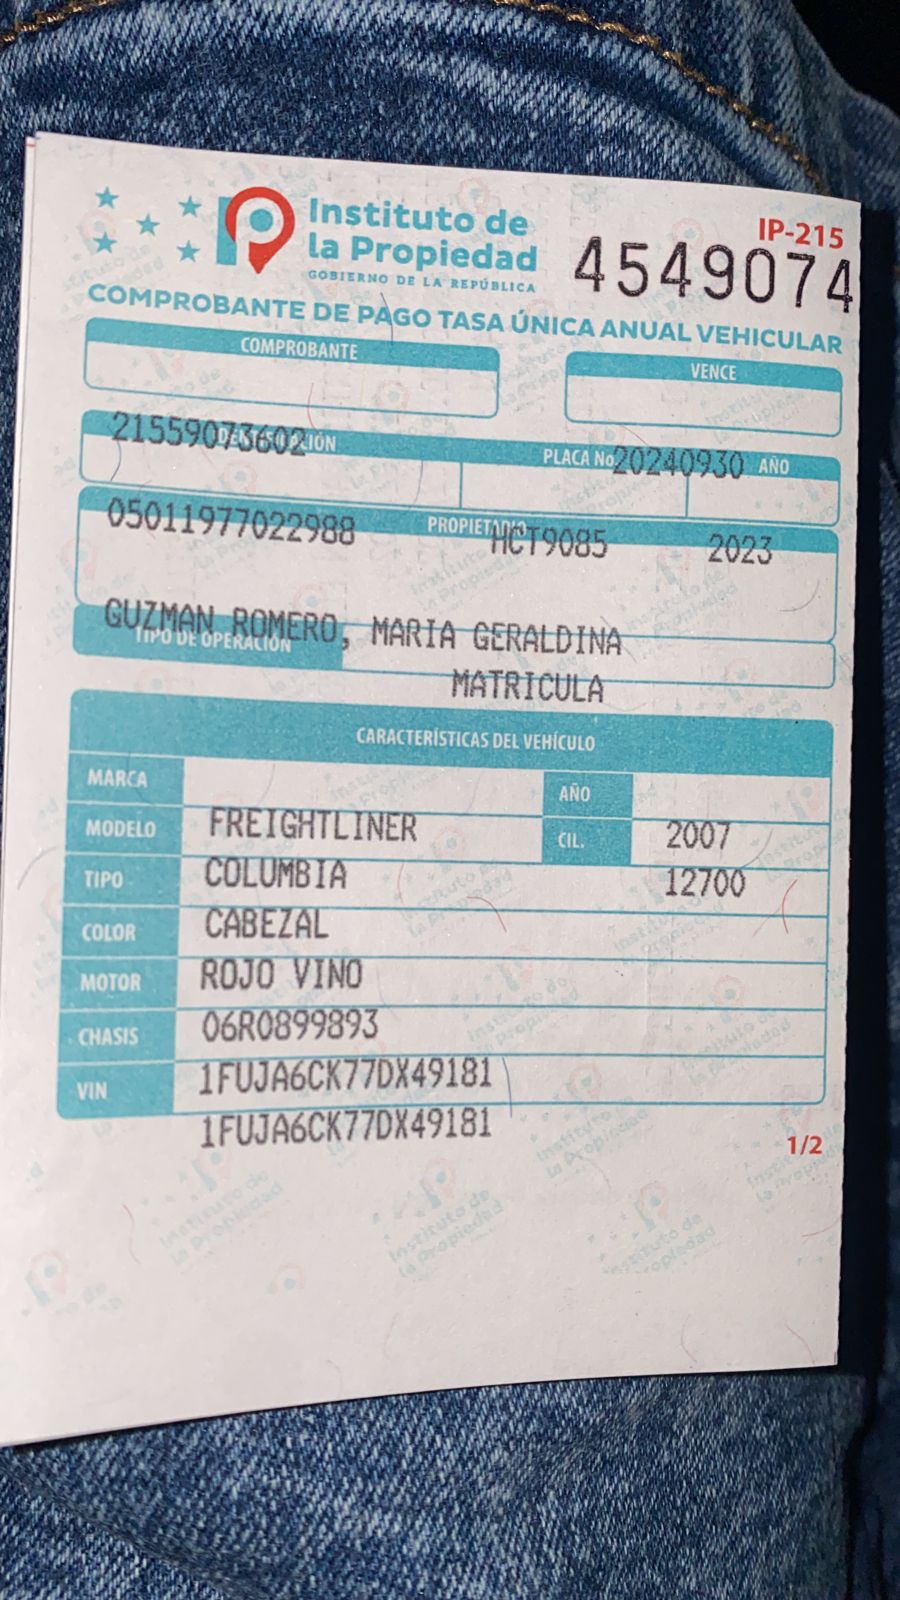 Instituto de
la Propiedad
GOBIERNO DE LA REPÚBLICA
IP-215
4549074
COMPROBANTE DE PAGO TASA ÚNICA ANUAL VEHICULAR
COMPROBANTE
VENCE
21559073602
PLACA No 20240930 AÑO
05011977022988
PROPIETARIO
HCT9085 2023
GUZMAN ROMERO, MARIA GERALDINA
TIPO DE OPERACIÓN
MATRICULA
CARACTERÍSTICAS DEL VEHÍCULO
MARCA
AÑO
MODELO FREIGHTLINER
CIL. 2007
TIPO COLUMBIA 12700
COLOR CABEZAL
MOTOR ROJO VINO
CHASIS 06R0899893
VIN 1FUJA6CK77DX49181
1FUJA6CK77DX49181
1/2